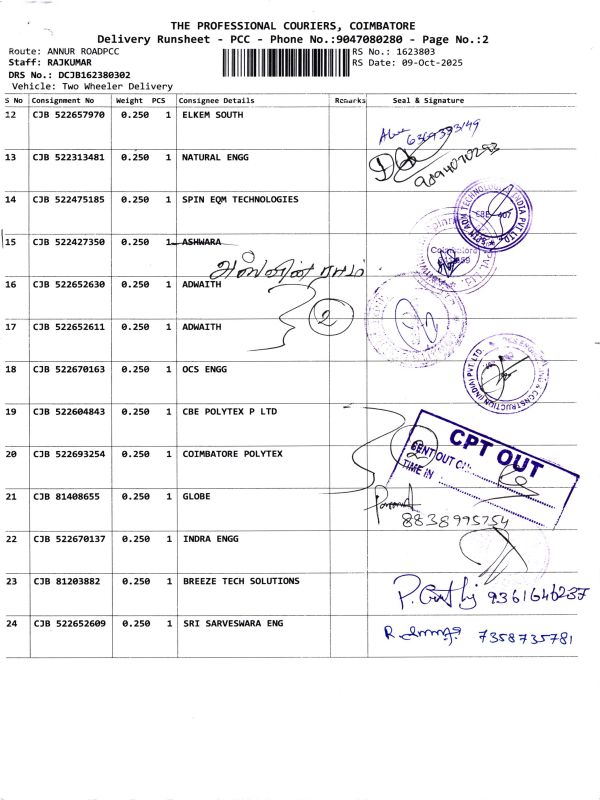 THE PROFESSIONAL COURIERS, COIMBATORE
Delivery Runsheet - PCC - Phone No.:9047080280 - Page No.:2
Route: ANNUR ROADPCC RS No.: 1623803
Staff: RAJKUMAR RS Date: 09-Oct-2025
DRS No.: DCJB162380302
Vehicle: Two Wheeler Delivery
S No Consignment No Weight PCS Consignee Details Remarks Seal & Signature
12 CJB 522657970 0.250 1 ELKEM SOUTH
6369393149
13 CJB 522313481 0.250 1 NATURAL ENGG
9894070293
14 CJB 522475185 0.250 1 SPIN EQM TECHNOLOGIES
CBE
15 CJB 522427350 0.250 1 ASHWARA
Coimbatore
16 CJB 522652630 0.250 1 ADWAITH
2
17 CJB 522652611 0.250 1 ADWAITH
18 CJB 522670163 0.250 1 OCS ENGG
19 CJB 522604843 0.250 1 CBE POLYTEX P LTD
CPT OUT
20 CJB 522693254 0.250 1 COIMBATORE POLYTEX
2
SENT OUT
TIME IN
21 CJB 81408655 0.250 1 GLOBE
8838995754
22 CJB 522670137 0.250 1 INDRA ENGG
23 CJB 81203882 0.250 1 BREEZE TECH SOLUTIONS
9361646237
24 CJB 522652609 0.250 1 SRI SARVESWARA ENG
7358735781